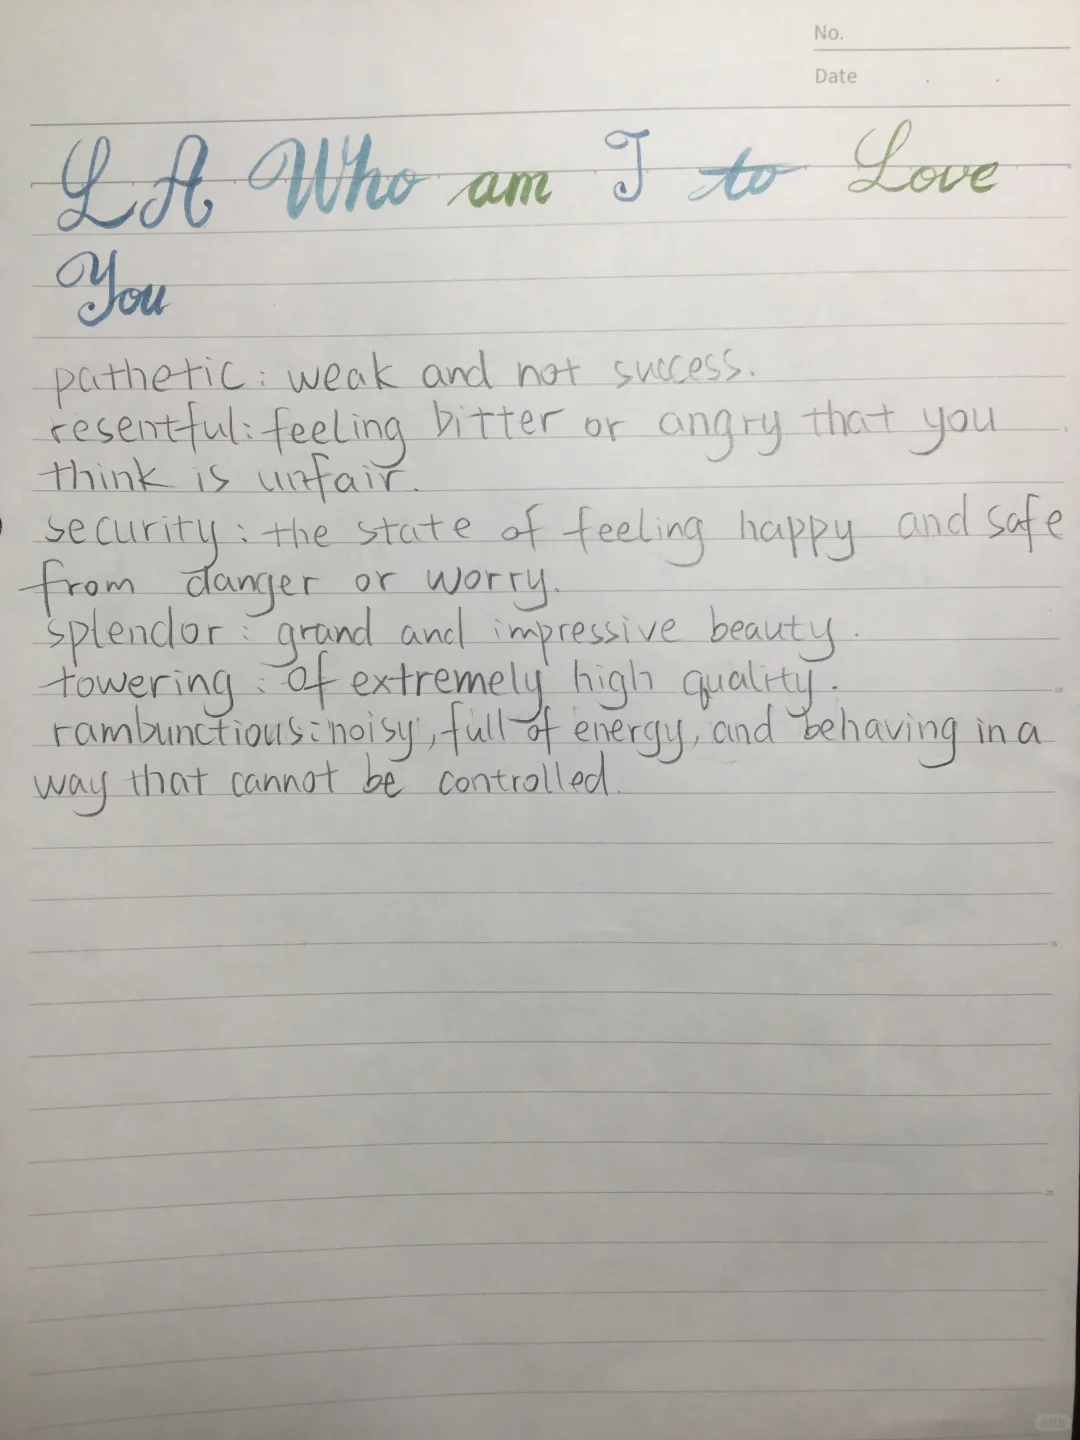 No.
Date
LA Who am I to Love
You
pathetic: weak and not success.
resentful: feeling bitter or angry that you
think is unfair.
security: the state of feeling happy and safe
from danger or worry.
splendor: grand and impressive beauty.
towering: of extremely high quality.
rambunctious: noisy, full of energy, and behaving in a
way that cannot be controlled.